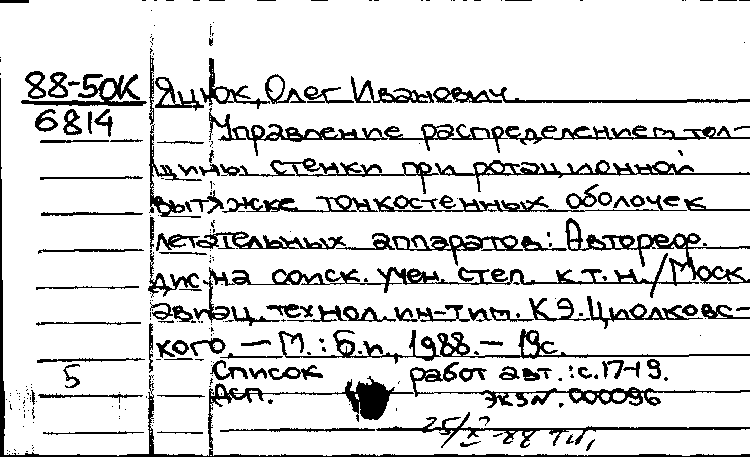 88-50К Яцюк, Олег Иванович.
6814 Управление распределением тол-
щины стенки при ротационной
вытяжке тонкостенных оболочек
летательных аппаратов: Автореф.
дис. на соиск. учен. степ. к.т.н./Моск
авиац. технол. ин-т им. К.Э. Циолковс-
кого. — М.: Б.и., 1988. — 19с.
5 Список работ авт.: с.17-19.
Дсп. экз N. 000096
25/X-88